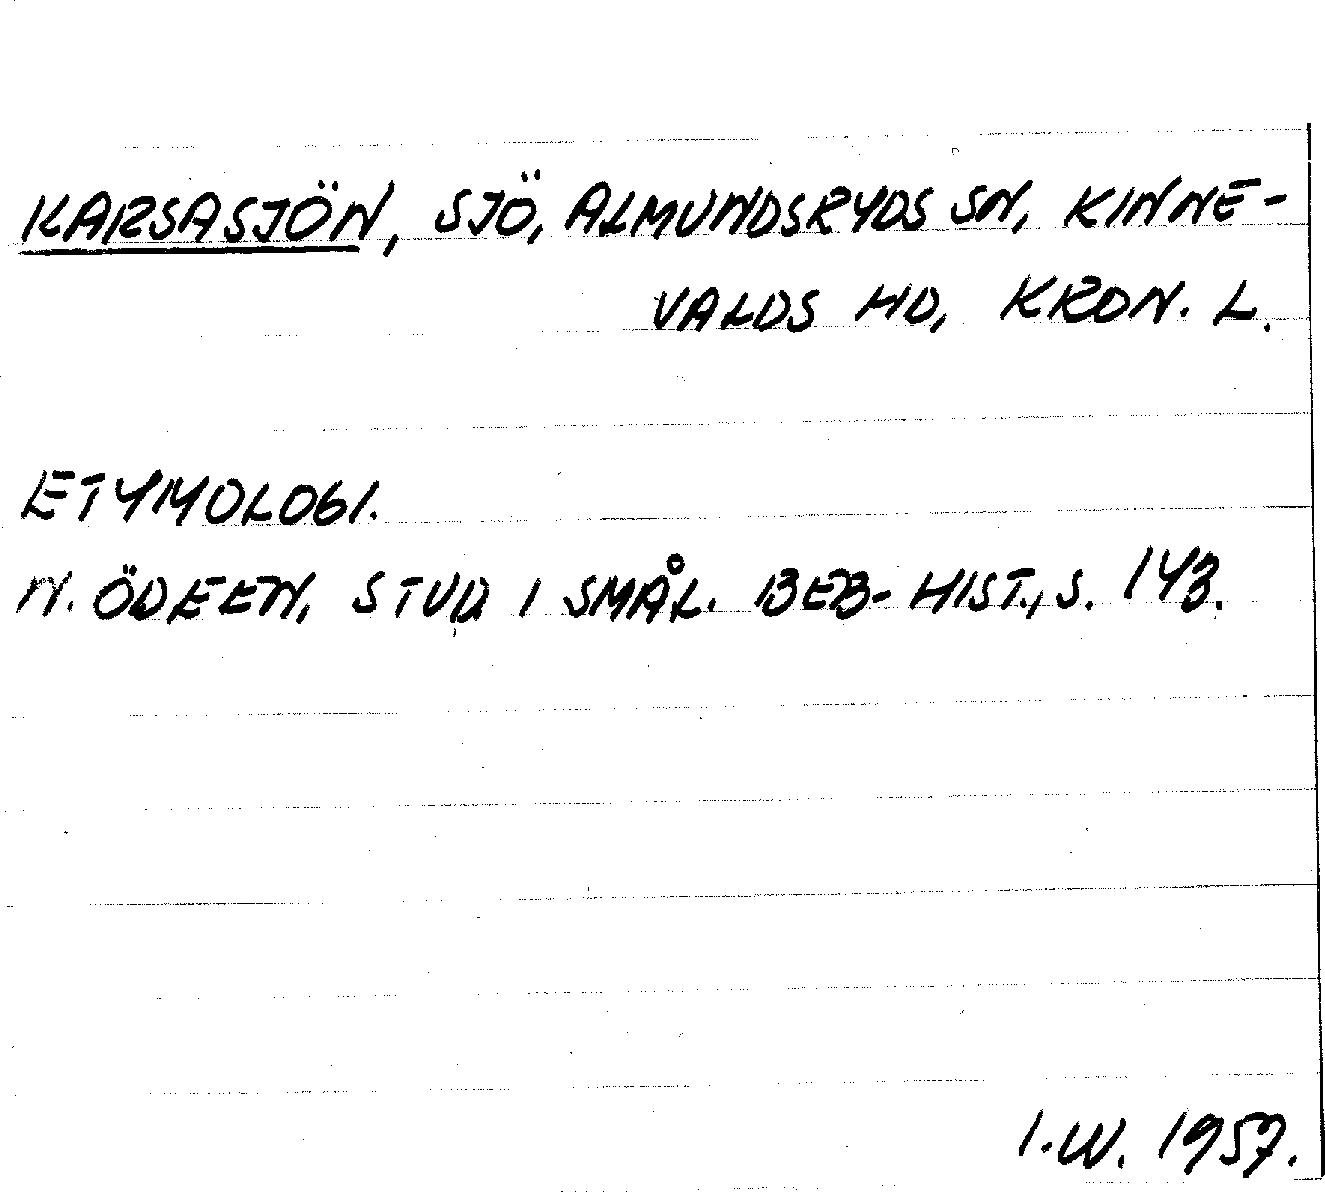 KARSASJÖN, SJÖ, ALMUNDSRYDS SN, KINNE-
VALDS HD, KRON. L.
ETYMOLOGI.
N. ÖDEEN, STUD I SMÅL. BEB-HIST., S. 143.
I.W. 1957.